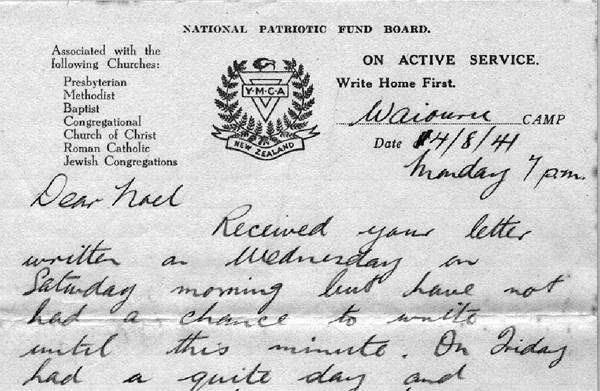 NATIONAL PATRIOTIC FUND BOARD.
Associated with the
following Churches:
Presbyterian
Methodist
Baptist
Congregational
Church of Christ
Roman Catholic
Jewish Congregations
Y·M·C·A
NEW ZEALAND
ON ACTIVE SERVICE.
Write Home First.
Waiouru CAMP
Date 4/8/41
Monday 7 p.m.
Dear Noel
Received your letter
written on Wednesday on
Saturday morning but have not
had a chance to write
until this minute. On Friday
had a quite day and